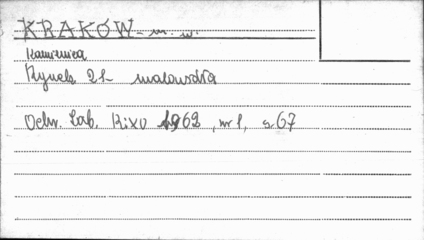 KRAKÓW - m. w.
Kamienica
Rynek 21 malowidła
Ochr. Zab. R.XV 1962, nr 1, s. 67